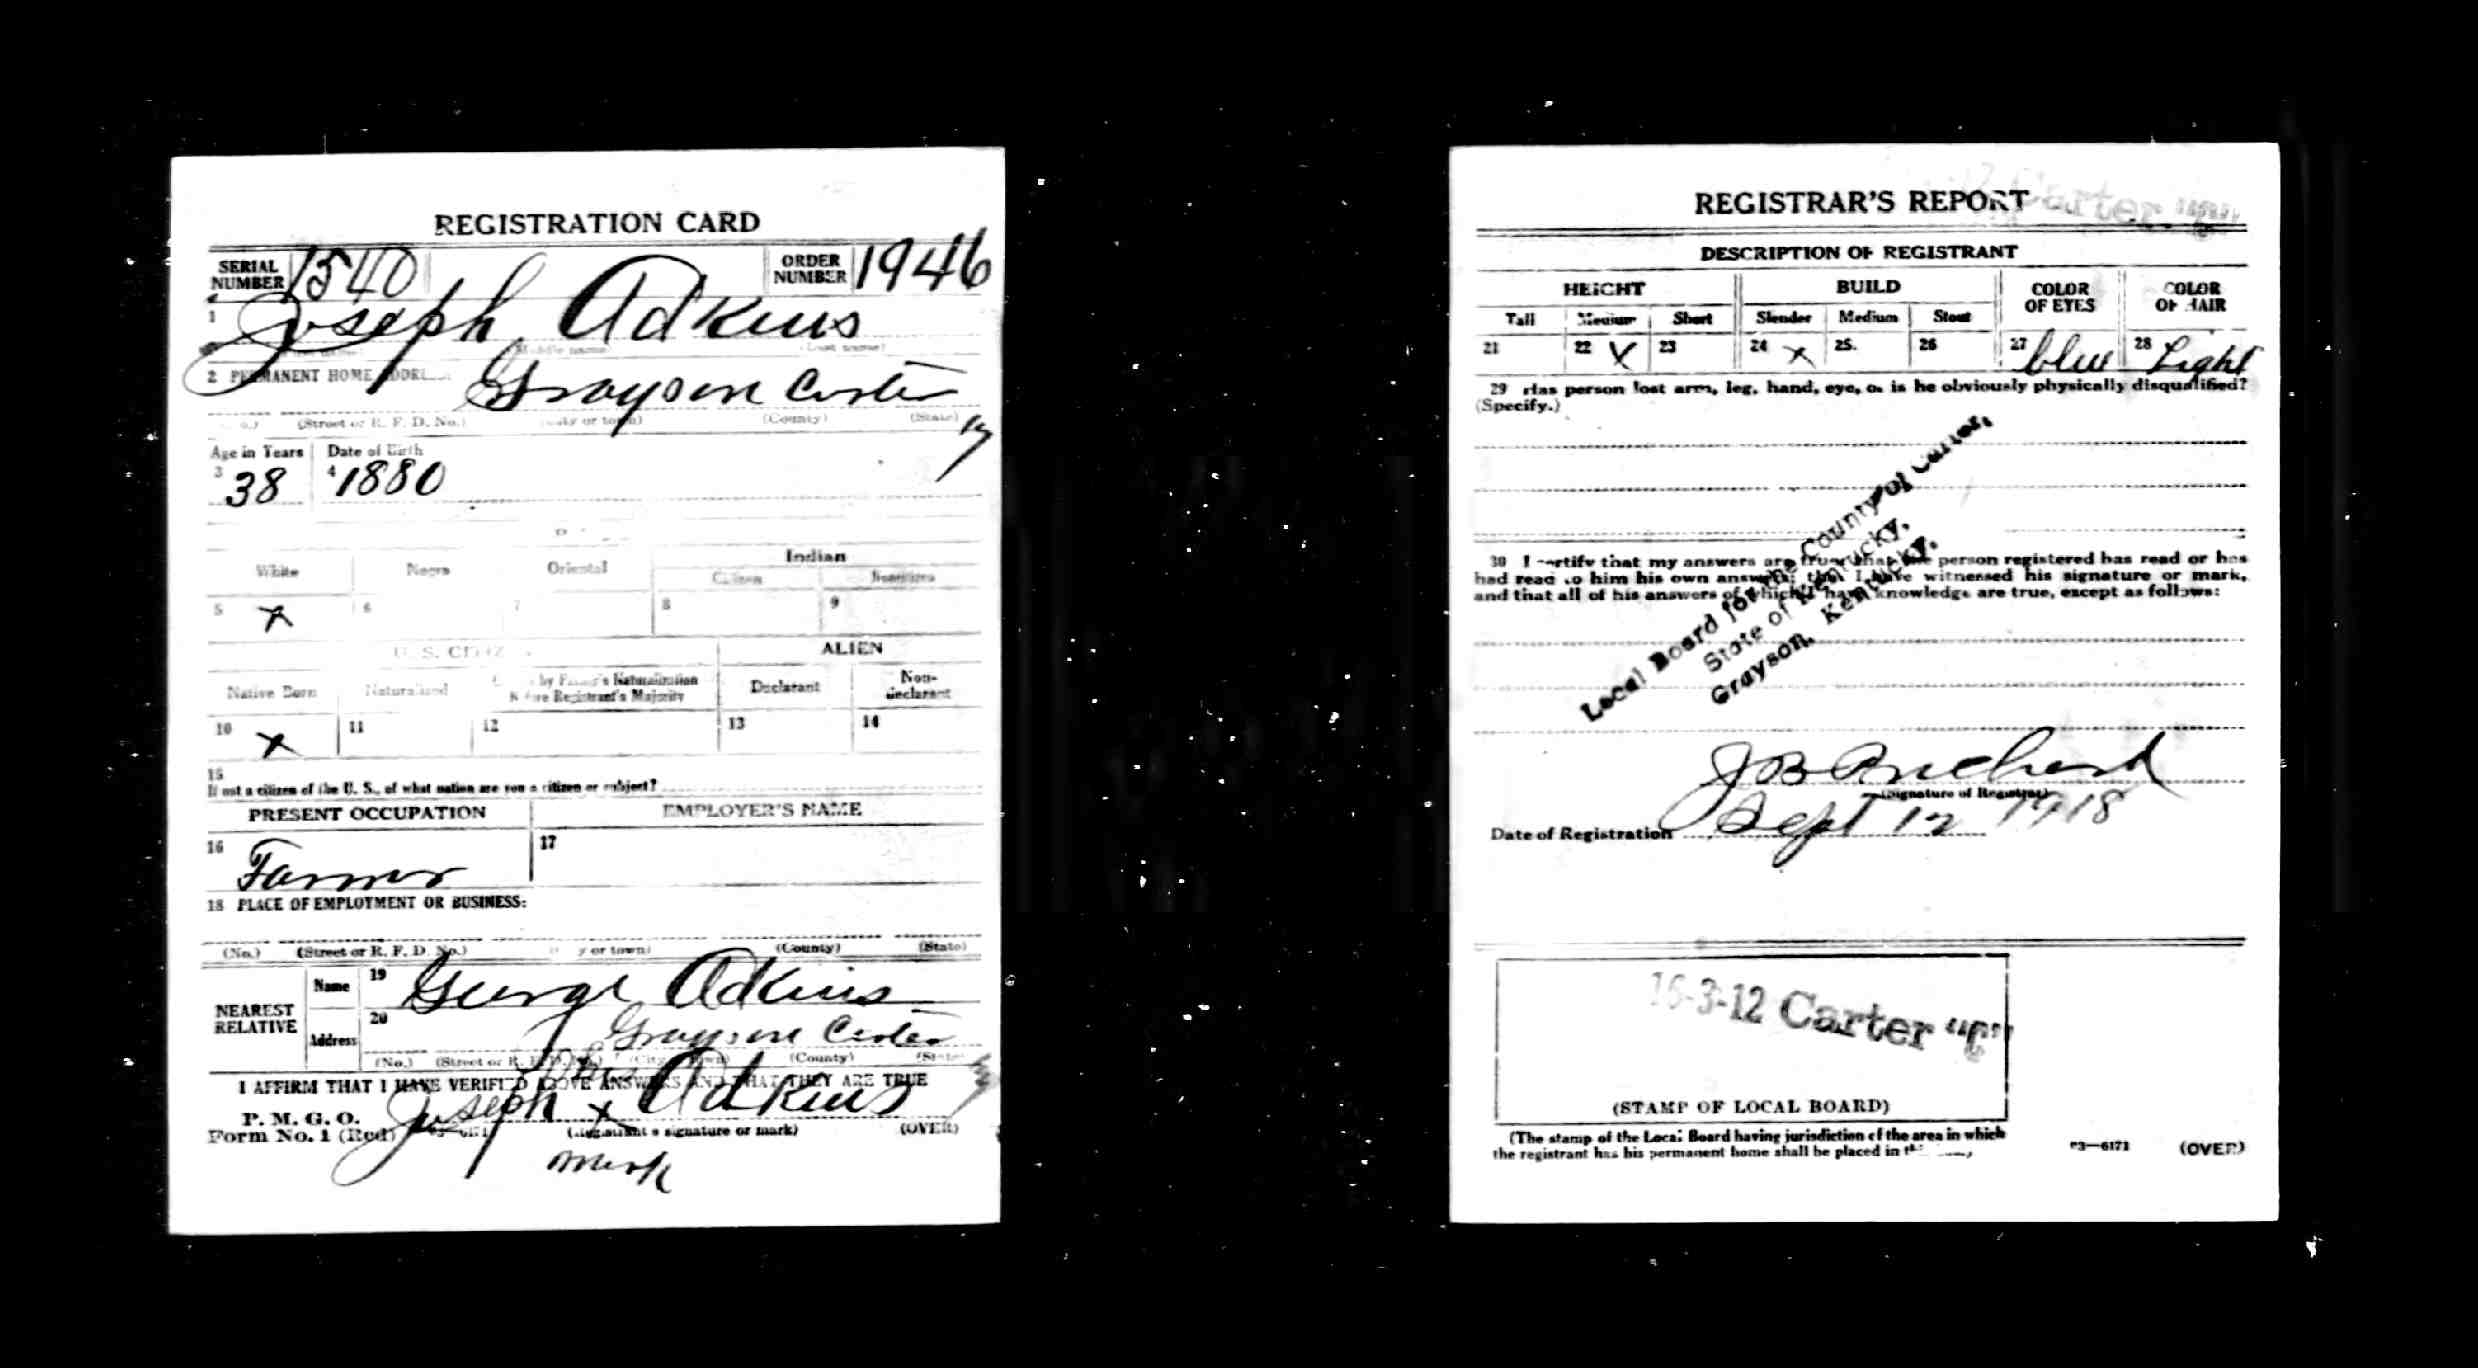 REGISTRATION CARD
SERIAL NUMBER 1540 ORDER NUMBER 1946
1 Joseph Adkins
(Middle name) (Last name)
2 PERMANENT HOME ADDRESS: Grayson Carter Ky
(No.) (Street or R. F. D. No.) (City or town) (County) (State)
Age in Years Date of Birth
3 38 4 1880
Indian
White Negro Oriental Citizen Noncitizen
5 x 6 7 8 9
U. S. CITIZ ALIEN
Native Born Naturalized by Father's Naturalization Before Registrant's Majority Declarant Non-declarant
10 x 11 12 13 14
15
If not a citizen of the U. S., of what nation are you a citizen or subject?
PRESENT OCCUPATION EMPLOYER'S NAME
16 Farmer 17
18 PLACE OF EMPLOYMENT OR BUSINESS:
(No.) (Street or R. F. D. No.) (City or town) (County) (State)
NEAREST RELATIVE Name 19 George Adkins
Address 20 Grayson Carter
(No.) (Street or R. F. D. No.) (City or town) (County) (State)
I AFFIRM THAT I HAVE VERIFIED ABOVE ANSWERS AND THAT THEY ARE TRUE
his
P. M. G. O.
Form No. 1 (Red) Joseph x Adkins
(Registrant's signature or mark) (OVER)
mark
REGISTRAR'S REPORT
Carter
DESCRIPTION OF REGISTRANT
HEIGHT BUILD COLOR OF EYES COLOR OF HAIR
Tall Medium Short Slender Medium Stout
21 22 x 23 24 x 25. 26 27 blue 28 Light
29 Has person lost arm, leg, hand, eye, or is he obviously physically disqualified?
(Specify.)
30 I certify that my answers are true; that the person registered has read or has
had read to him his own answers; that I have witnessed his signature or mark,
and that all of his answers of which I have knowledge are true, except as follows:
Local Board for the County of Carter,
State of Kentucky,
Grayson, Kentucky.
(Signature of Registrar)
Date of Registration Sept 12 1918
16-3-12 Carter "C"
(STAMP OF LOCAL BOARD)
(The stamp of the Local Board having jurisdiction of the area in which
the registrant has his permanent home shall be placed in this
03—6171 (OVER)